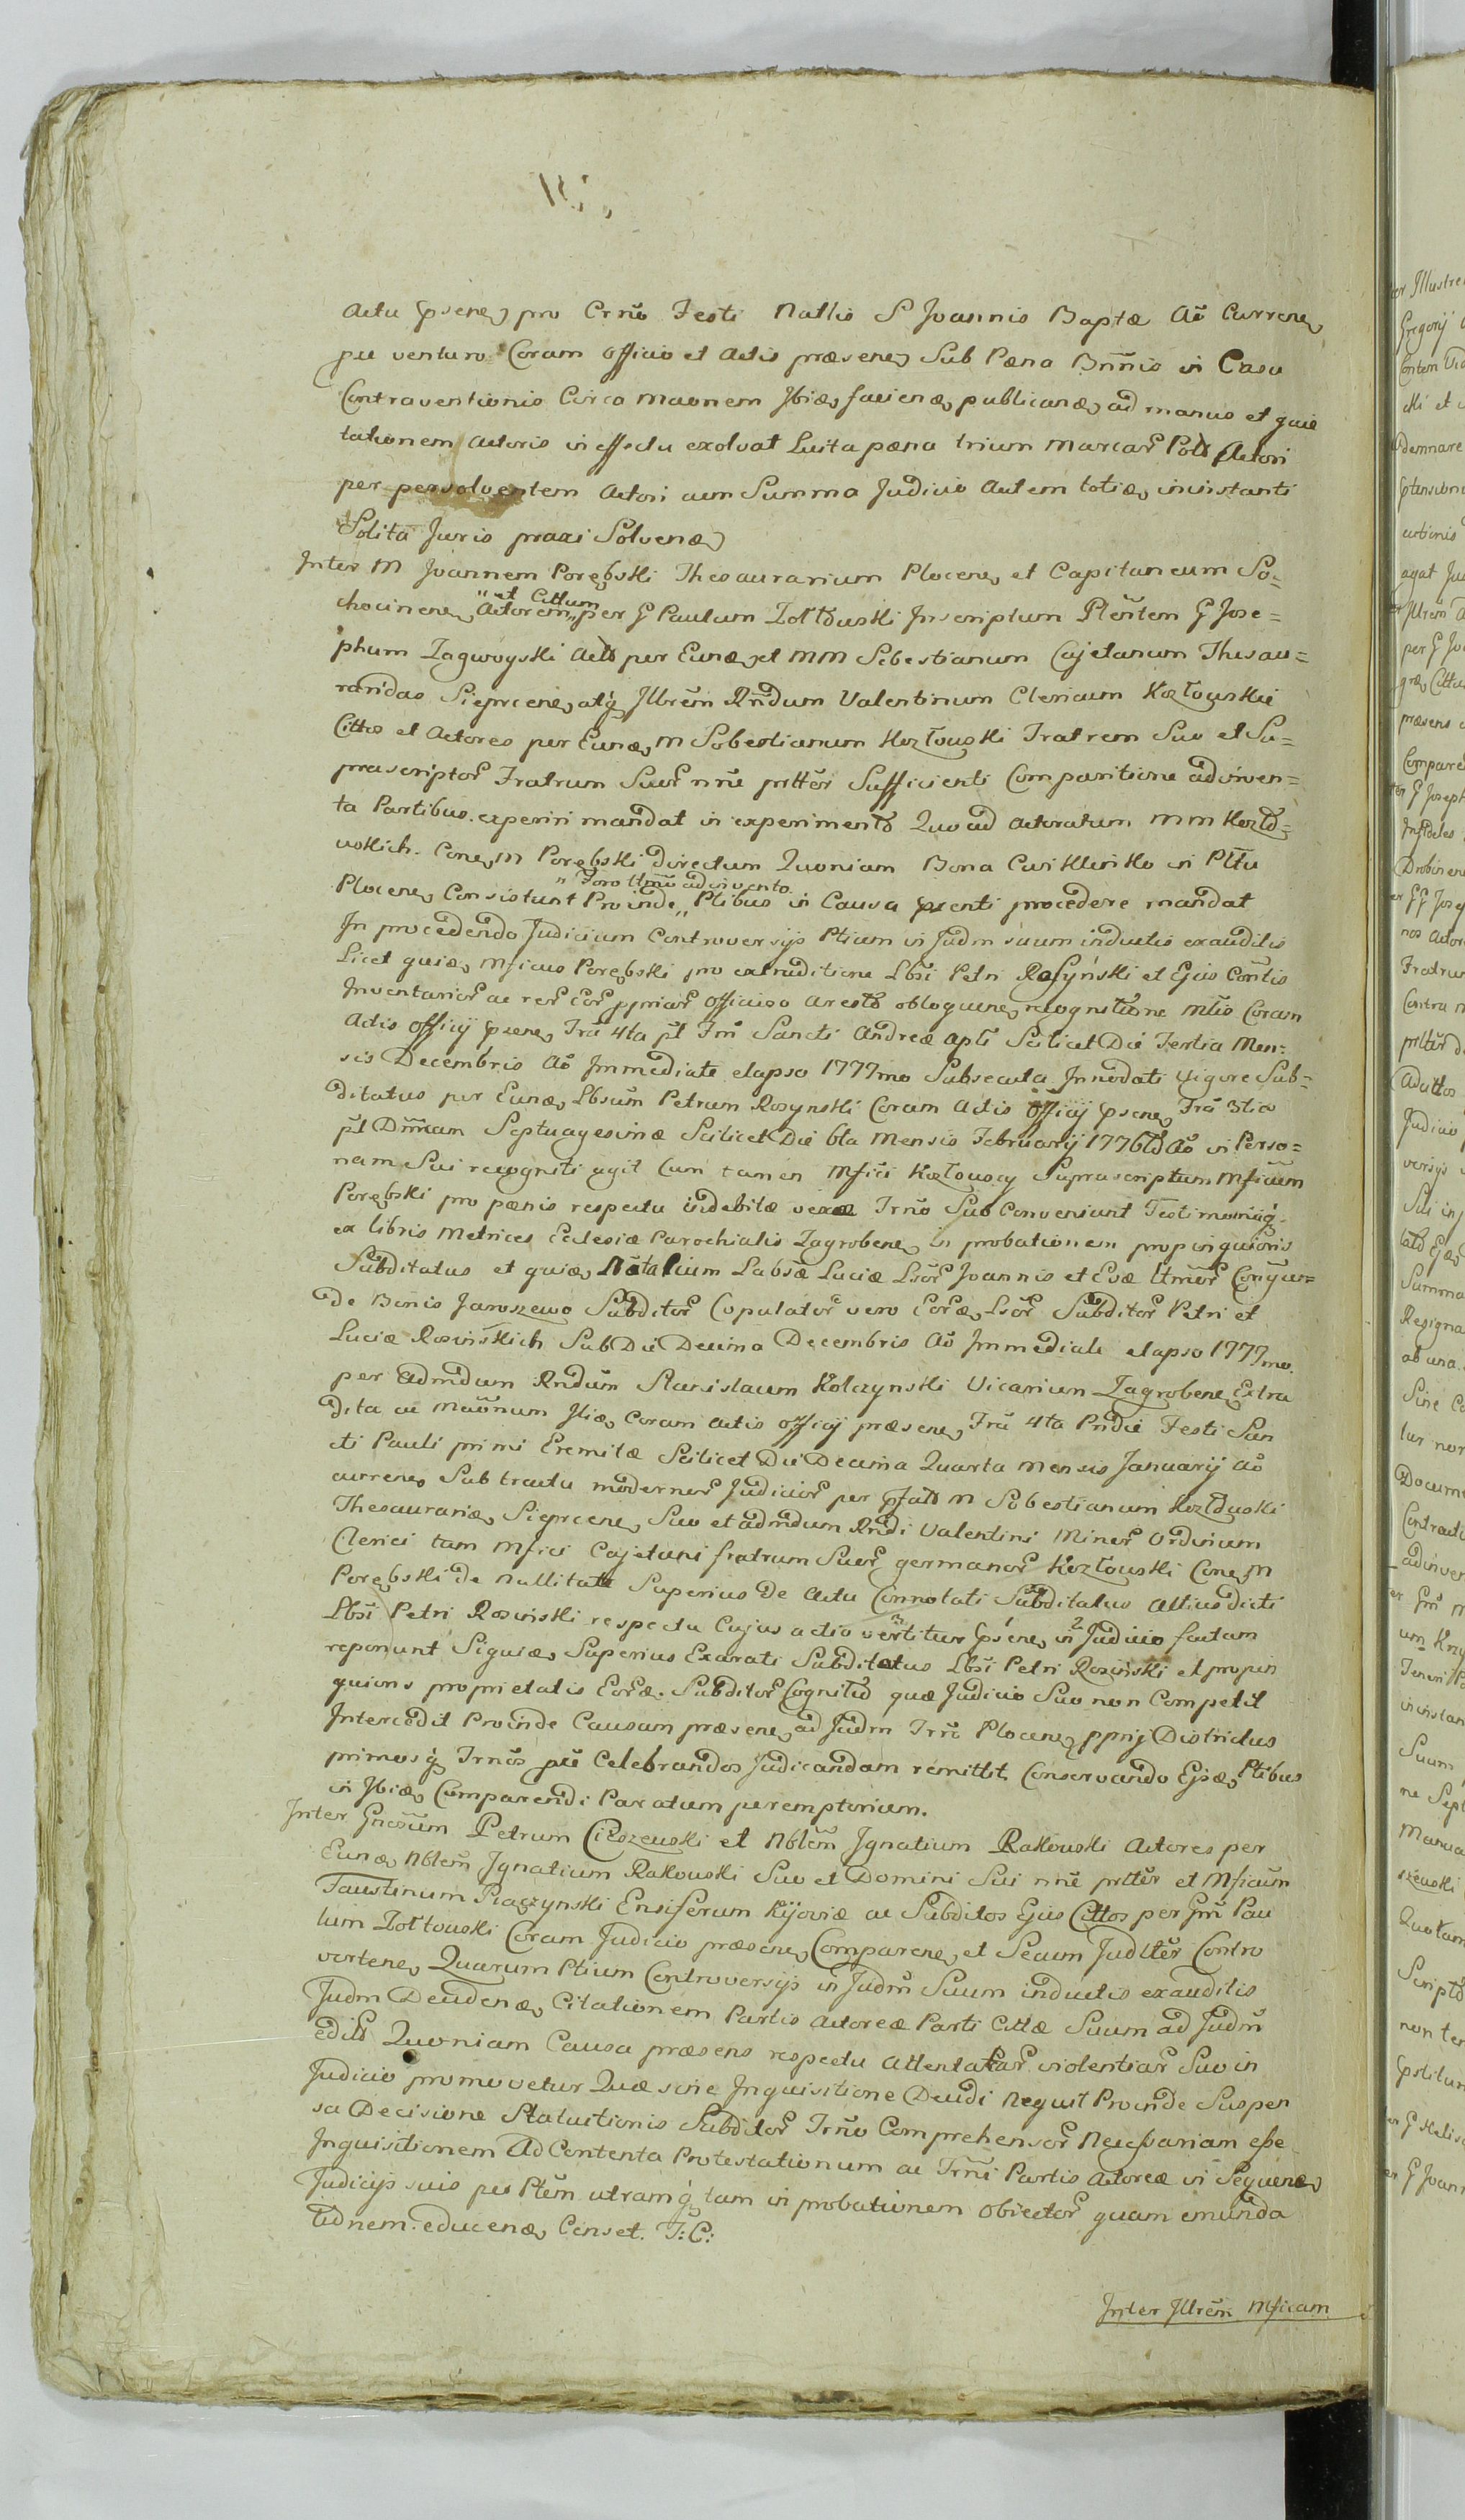 Actu psene, pro Crnõ Festi Natlis S Joannis Baptæ Aõ Currene,
pee venturo Coram Officio et Actis præsene, Sub Pæna Bnnis in Casu
Contraventionis Circa maonem Ibiæ, faciend, publicand, ad manus et quie
tationem Actoris in effectu exolvat Luita pæna trium Marcar Pol Actori
per persolventem Actori cum Summa Judicio Autem totiæ, ininstanti
Solita Juris praxi Solvenæ,
Inter M Joannem Porębski Thesaurarium Plocene, et Capitaneum So=
chocinene, Actorem "et Cittum" per G Paulum Zołtowski Inscriptum Pleñtem G Jose=
phum Zagwoyski Actõ per Eunæ, et MM Sebestianum Cajetanum Thesau=
raridas Sieprcene, atq, Illrem Rñdum Valentinum Clericum Kozłouskie
Cittos et Actores per Eunæ, M Sobestianum Kozłouski Fratrem Suo et Su=
prascriptor Fratrum Suor nñe prttẽr Sufficienti Comparitione adinven=
ta Partibus experiri mandat in experimento Quo ad Actoratum MM Kozło=
uskich. Cone, M Porębski directum Quoniam Bona Cwikliñko in Pltu
Plocene, Consistunt Proinde "Foro ttmũ adinvento" Ptibus in Causa psenti procedere mandat
In procedendo Judicium Controversijs Ptium in Judm suum inductis exauditis
Licet quiæ, Mficus Porębski pro extraditione Lbsi Petri Rosyński et Ejus Coñtis
Inventarior ac rer Eor ppriar Officioso Aresto obloquene, recognitione Mtis Coram
Actis Officij psene, Frã 4ta pt Fm Sancti Andreæ Apti Scilicet Die Tertia Men=
sis Decembris Aõ Immediate elapso 1777mo Subsecuta Innodati vigore Sub=
ditatus per Eunæ, Lbsum Petrum Rosynski Coram Actis Officij psene, Frã 3tia
pt Dmñcam Septuagesimæ Scilicet Die 6ta Mensis Februarij 1776to Aõ in Perso=
nam Sui recogniti agit Cum tamen Mfici Kozłouscy Suprascriptum Mficum
Porębski pro pænis respectu indebitæ vexæ Trño Suo Conveniunt Testimoniũq,
ex libris Metrices Ecclesiæ Parochialis Zagrobene, in probationem propinquioris
Subditatus et quiæ, Natalium Labsæ Luciæ Lsor Joannis et Evæ ttmor Conjun=
de Bonis Jaroszewo Subditor Copulator vero Eoræ, Lsor Subditor Petri et
Luciæ Rosińskich Sub Die Decima Decembris Aõ Immediate elapso 1777mo
per Admdum Rndum Stanislaum Kolczynski Vicarium Zagrobene, Extra
dita ac Maõnum Iliæ, Coram Actis Officij præsene, Frã 4ta Pridie Festi San
cti Pauli primi Eremitæ Scilicet Die Decima Quarta Mensis Januarij Aõ
currene, Sub tractu modernor Judicior per psato M Sobestianum Kozłouski
Thesaurariæ, Sieprcene, Suo et admdum Rndi Valentini Minor Ordinum
Clerici tam Mfici Cajetani fratrum Suor germanor Kozłouski Cone, M
Porębski de Nullitate Superius de Actu Connotati Subditatus Altius dicti
Lbsi Petri Rosiński respectu Cujus actio vertitur psene, in Judicio factam
reponunt Siquiæ, Superius Exarati Subditatus Lbsi Petri Rosiński et propin
quioris proprietatis Eoræ, Subditor Cognitio quæ Judicio Suo non Competit
Intercedit Proinde Causam præsene, ad Judm Trre Plocene, pprij Districtus
primosq, Trnos pũ Celebrandos Judicandam remittit Conservando Ejsæ, Ptibus
in Ibiæ, Comparendi Paratum peremptorium.
Inter Gnesum Petrum Cieszewski et Nblem Ignatium Rakouski Actores per
Eunæ, Nblem Ignatium Rakouski Suo et Domini Sui nñe prttẽr et Mficum
Faustinum Piączynski Ensiferum Kijoviæ ac Subditos Ejus Cittos per Gm Pau
lum Zołtouski Coram Judicio præsene, Comparene, et Secum Judltẽr Contro
vertene, Quarum Ptium Controversijs in Judm Suum inductis exauditis
Judm Deudenæ, Citationem Partis Actoreæ Parti Cittæ Suum ad Judm
edito Quoniam Causa præsens respectu Attentatar violentiar Suo in
Judicio promovetur Quæ sine Inquisitione Deudi Nequit Proinde Suspen
sa Decisione Statuitionis Subditor Trño Comprehensor Necessariam esse
Inquisitionem Ad Contenta Protestationum ac Trni Partis Actoreæ in Sequenæ,
Judicijs suis per Ptem utramq, tam in probationem Obiector quam emunda
tionem. educenæ, Censet. T: C:
Inter Illrem Mficam